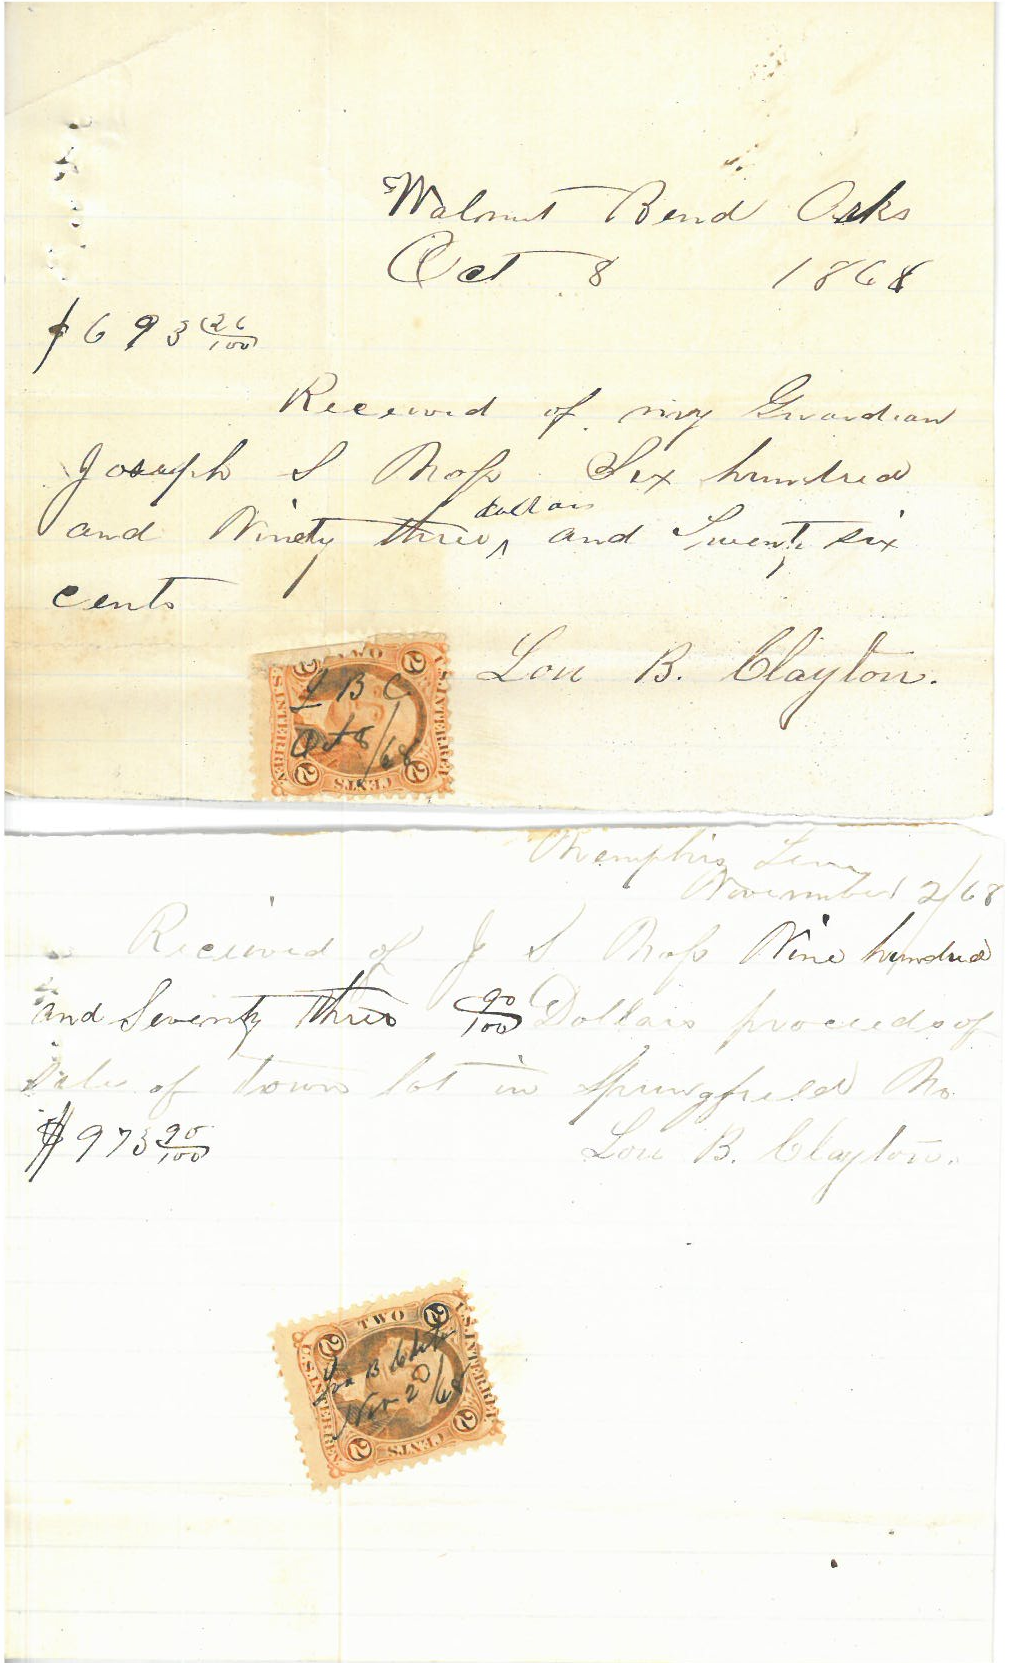 Walnut Bend Arks
Oct 8 1868
$693 26/100
Received of my Guardian
Joseph S Moss Six hundred
dollars
and Ninety three ^ and Twenty six
cents
Lou B. Clayton.
TWO
2 2
U.S.INTER.REV.
U.S.INTER.REV.
L B C
Oct 8/68
2 2
CENTS
Memphis Tenn
November 2/68
Received of J S Moss Nine hundred
and Seventy three 90/100 Dollars proceeds of
Sale of town lot in Springfield Mo.
$973 90/100
Lou B. Clayton.
TWO
2 2
U.S.INTER.REV.
U.S.INTER.REV.
Lou B
Nov 20/68
2 2
CENTS